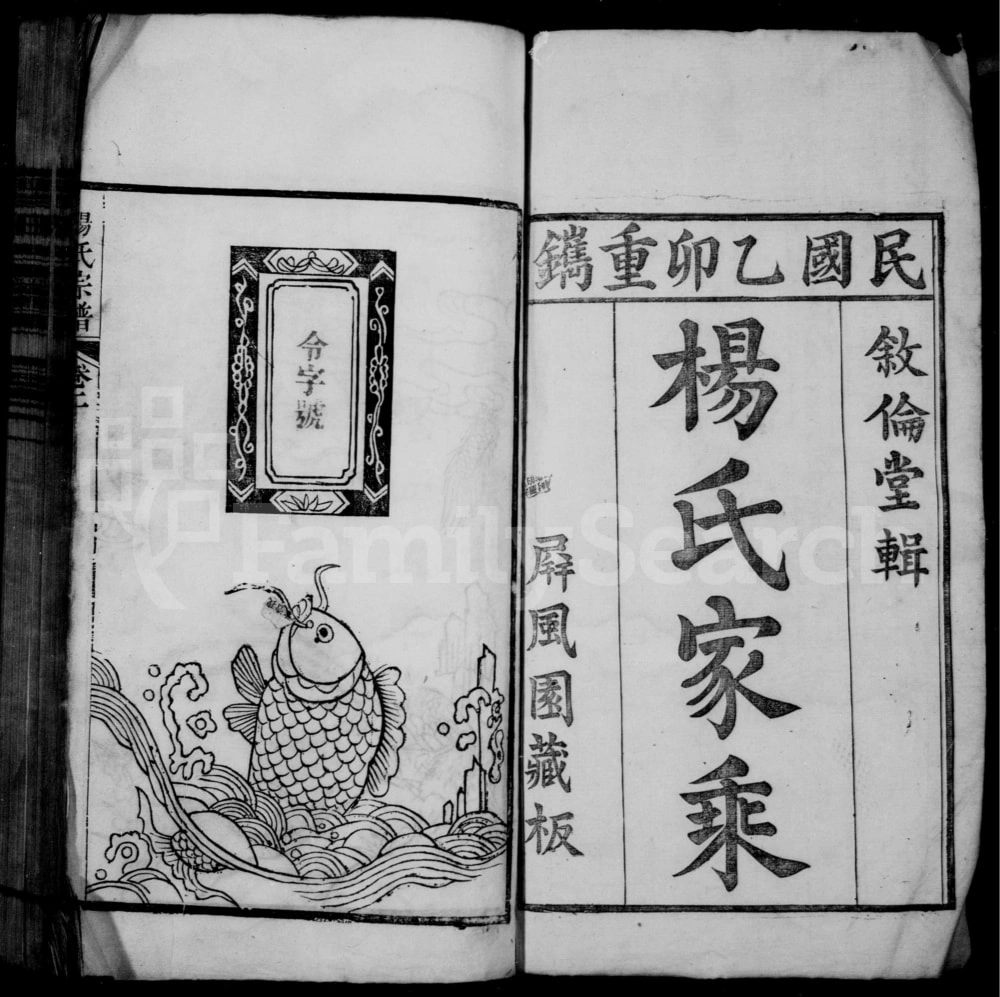 民國乙卯重鐫
敘倫堂輯
楊氏家乘
屏風園藏板
令字號
楊氏宗譜
卷二
FamilySearch